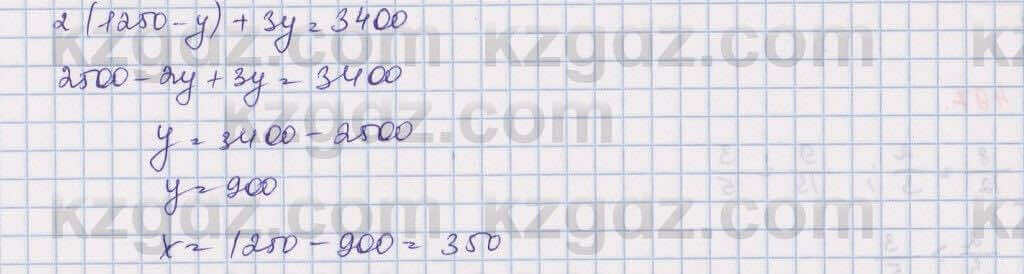 2 (1250 - y) + 3y = 3400
2500 - 2y + 3y = 3400
y = 3400 - 2500
y = 900
x = 1250 - 900 = 350
kzgdz.com kzgdz.com
kzgdz.com
kzgdz.com kzgdz.com